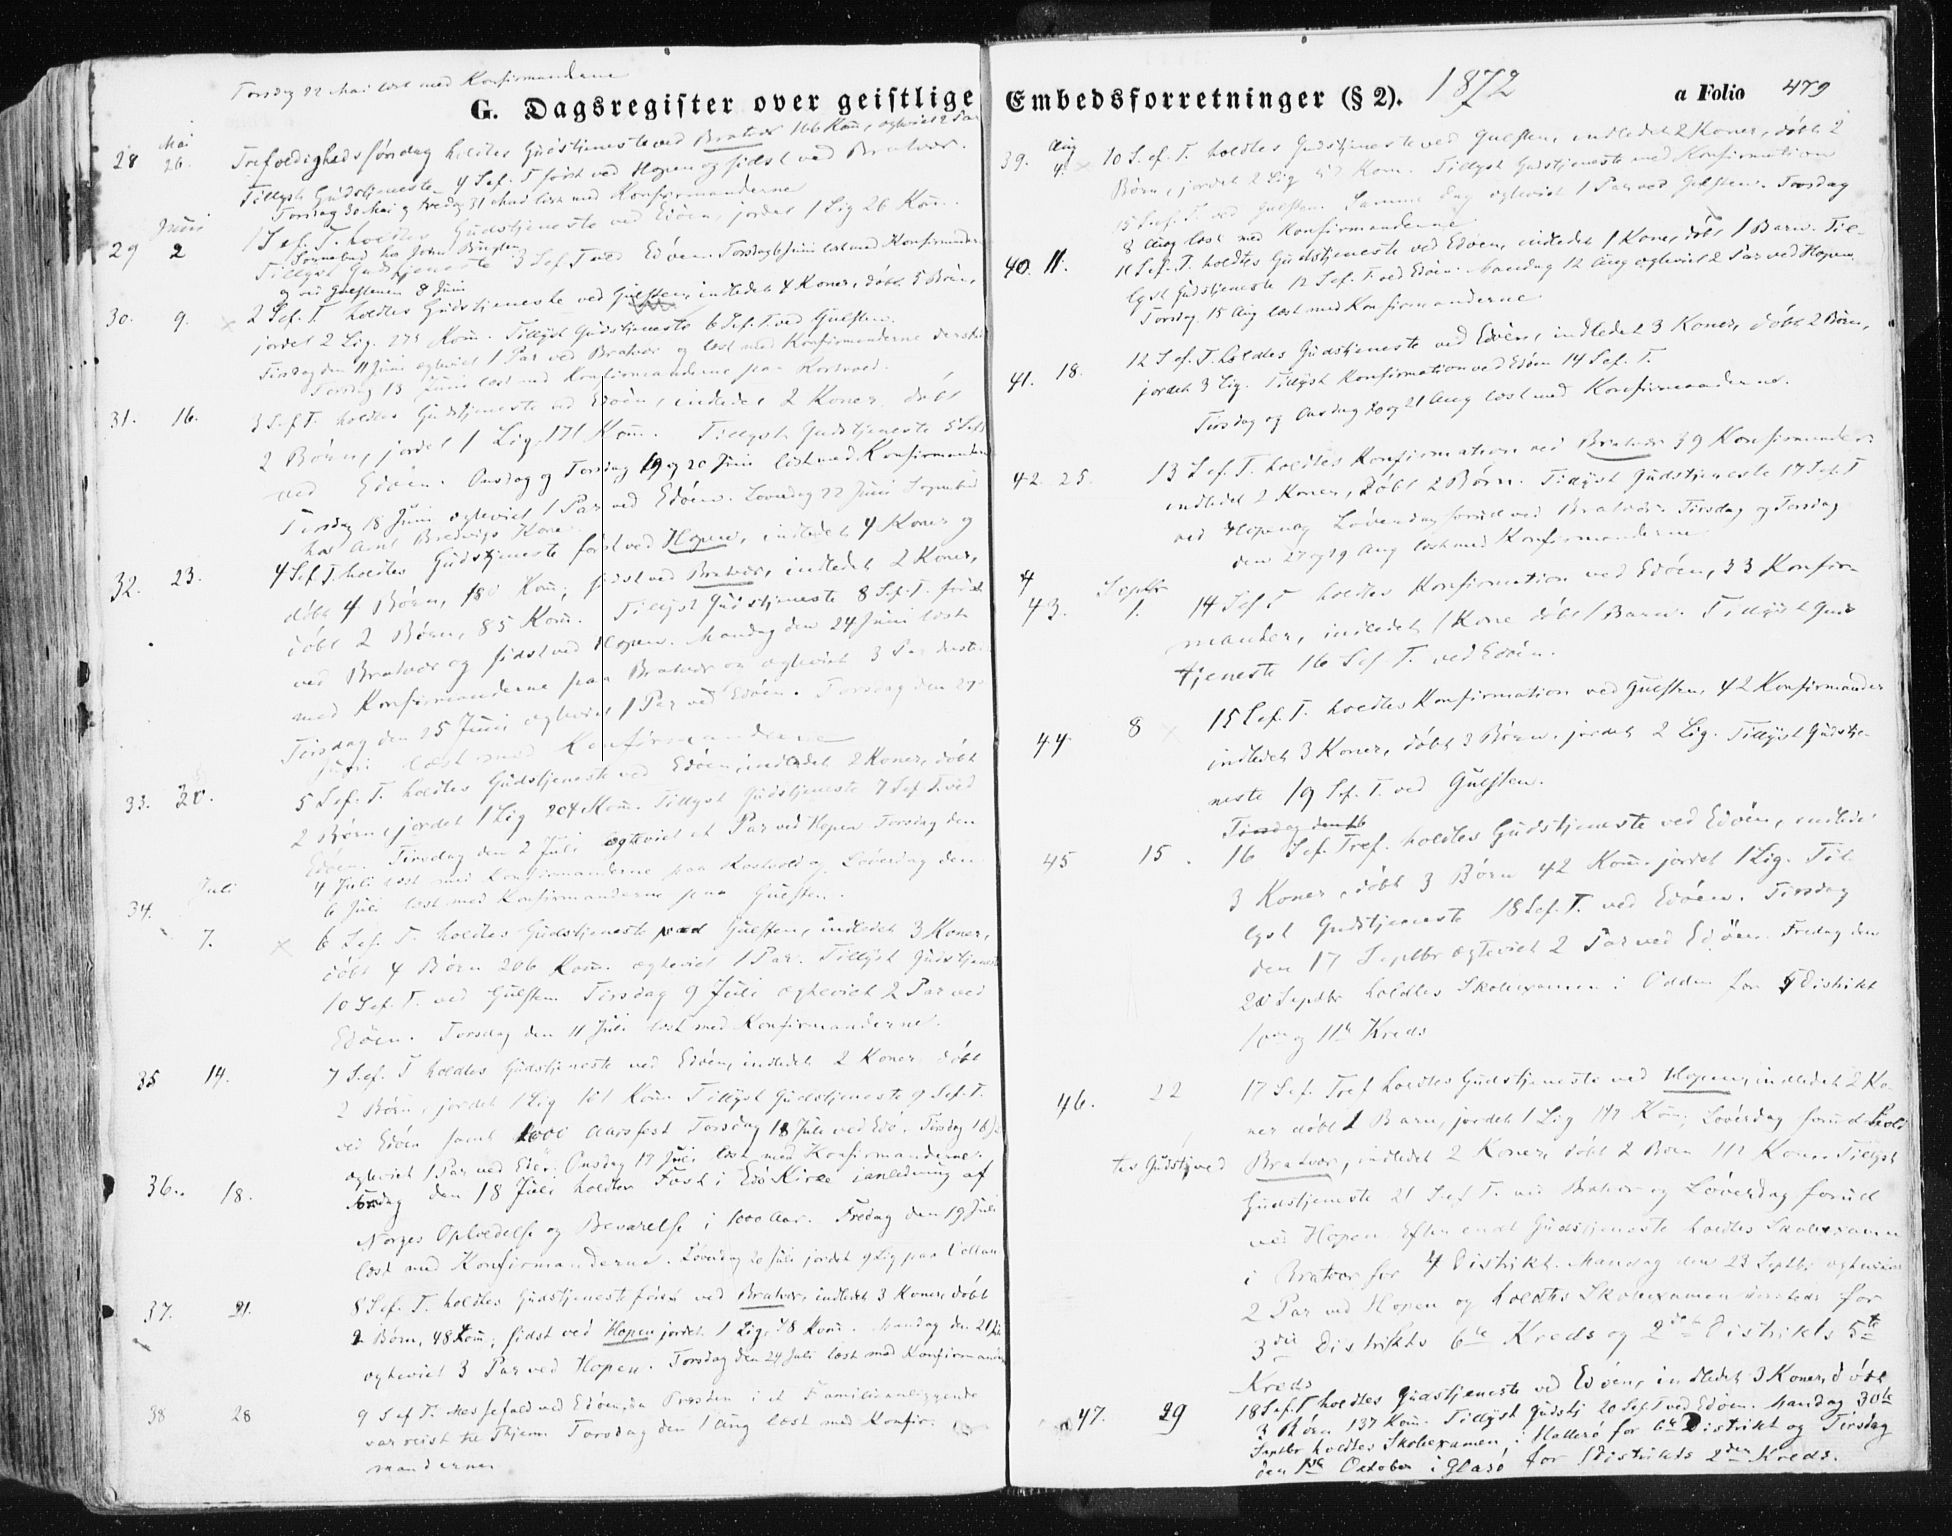 Torsdag 22 Mai læst med Konfirmanderne
G. Dagsregister over geistlige
28 Mai 26. Trefoldighedssøndag holdtes Gudstjeneste ved Bratvær 166 Kom, egteviet 2 Par
Tillyst Gudstjeneste 4 S.ef.T. først ved Hopen og sidst ved Bratvær.
Torsdag 30 Mai og Fredag 31 Mai læst med Konfirmanderne
29 Juni 2 1 S.ef.T. holdtes Gudstjeneste ved Edøen, jordet 1 Lig 26 Kom.
Sognebud hos John
Tillyst Gudstjeneste 3 S.ef.T ved Edøen. Torsdag 6 Juni læst med Konfirmander
og ved Gulstenen 8 Juni
30. 9. 2 S.ef.T. holdtes Gudstjeneste ved Gulsten, indledet 4 Koner, døbt 5 Børn,
jordet 2 Lig. 275 Kom. Tillyst Gudstjeneste 6 S.ef.T. ved Gulsten.
Tirsdag den 11 Juni egteviet 1 Par ved Bratvær og læst med Konfirmanderne dersted
Torsdag 13 Juni læst med Konfirmanderne paa
31. 16. 3 S.ef.T. holdtes Gudstjeneste ved Edøen, indledet 2 Koner, døbt
2 Børn, jordet 1 Lig, 171 Kom. Tillyst Gudstjeneste 5 S.ef.T
ved Edøen. Onsdag og Torsdag 19 og 20 Juni læst med Konfirmanderne
Tirsdag 18 Juni egteviet 1 Par ved Edøen. Løverdag 22 Juni Sognebud
hos Arnt Bredvigs Kone
32. 23. 4 S.ef.T. holdtes Gudstjeneste først ved Hopen, indledet 4 Koner og
døbt 4 Børn, 180 Kom; sidst ved Bratvær, indledet 2 Koner,
døbt 2 Børn, 85 Kom. Tillyst Gudstjeneste 8 S.ef.T. først
ved Bratvær og sidst ved Hopen. Mandag den 24 Juni læst
med Konfirmanderne paa Bratvær og egteviet 3 Par dersted.
Tirsdag den 25 Juni egteviet 1 Par ved Edøen. Torsdag den 27
Juni læst med Konfirmanderne
33. 30. 5 S.ef.T. holdtes Gudstjeneste ved Edøen, indledet 2 Koner, døbt
2 Børn, jordet 1 Lig 204 Kom. Tillyst Gudstjeneste 7 S.ef.T. ved
Edøen. Tirsdag den 2 Juli egteviet et Par ved Hopen Torsdag den
4 Juli læst med Konfirmanderne paa og Løverdag den
6 Juli læst med Konfirmanderne paa Gulsten.
34. Juli 7. 6 S.ef.T. holdtes Gudstjeneste ved Gulsten, indledet 3 Koner,
døbt 4 Børn 206 Kom. egteviet 1 Par. Tillyst Gudstjeneste
10 S.ef.T. ved Gulsten Tirsdag 9 Juli egteviet 2 Par ved
Edøen. Torsdag den 11 Juli læst med Konfirmanderne.
35 14. 7 S.ef.T holdtes Gudstjeneste ved Edøen, indledet 2 Koner, døbt
2 Børn, jordet 1 Lig 101 Kom. Tillyst Gudstjeneste 9 S.ef.T.
ved Edøen samt 1000 Aarsfest Torsdag 18 Juli ved Edø. Tirsdag 16 J
egteviet 1 Par ved Edø. Onsdag 17 Juli læst med Konfirmanderne.
36. 18. Torsdag den 18 Juli holdtes Fest i Edø Kirke i anledning af
Norges Oplevelse og Bevarelse i 1000 Aar. Fredag den 19 Juli
læst med Konfirmanderne. Løverdag 20 Juli jordet 9 Lig paa
37. 21. 8 S.ef.T. holdtes Gudstjeneste først ved Bratvær, indledet 3 Koner, døbt
2 Børn, 48 Kom; sidst ved Hopen jordet 1 Lig, 78 Kom. Mandag den
egteviet 3 Par ved Hopen. Torsdag den 24 Juli læst med Konfirmander
38 28 9 S.ef.T. Messefald ved Edøen, da Presten i et Familieanliggende
var reist til Thjem Torsdag den 1 Aug læst med Konfir-
manderne
Embedsforretninger (§ 2). 1872 a Folio 479
39. Aug 4. 10 S.ef.T. holdtes Gudstjeneste ved Gulsten, indledet 2 Koner, døbt 2
Børn, jordet 2 Lig 57 Kom. Tillyst Gudstjeneste med Konfirmation
15 S.ef.T. ved Gulsten. Samme Dag egteviet 1 Par ved Gulsten. Torsdag
8 Aug læst med Konfirmanderne
40. 11. 11 S.ef.T. holdtes Gudstjeneste ved Edøen, indledet 1 Kone, døbt 1 Barn. Til-
lyst Gudstjeneste 12 S.ef.T. ved Edøen. Mandag 12 Aug egteviet 2 Par ved Hopen
Torsdag 15 Aug læst med Konfirmanderne
41. 18. 12 S.ef.T. holdtes Gudstjeneste ved Edøen, indledet 3 Koner, døbt 2 Børn,
jordet 3 Lig. Tillyst Konfirmation ved Edøen 14 S.ef.T.
Tirsdag og Onsdag 20 og 21 Aug læst med Konfirmanderne.
42. 25. 13 S.ef.T. holdtes Konfirmation ved Bratvær 39 Konfirmander.
indledet 2 Koner, døbt 2 Børn. Tillyst Gudstjeneste 17 S.ef.T
ved Hopen og Løverdag forud ved Bratvær. Tirsdag og Torsdag
den 27 og 29 Aug læst med Konfirmanderne
43. Septbr 1. 14 S.ef.T holdtes Konfirmation ved Edøen, 33 Konfir-
mander, indledet 1 Kone døbt 1 Barn. Tillyst Guds
tjeneste 16 S.ef.T. ved Edøen.
44. 8 15 S.ef.T. holdtes Konfirmation ved Gulsten, 42 Konfirmander
indledet 3 Koner, døbt 3 Børn. jordet 2 Lig. Tillyst Gudstje-
neste 19 S.ef.T. ved Gulsten.
Tirsdag den 16
45 15. 16 S.ef.Tref. holdtes Gudstjeneste ved Edøen, indledet
3 Koner, døbt 3 Børn 42 Kom. jordet 1 Lig. Til-
lyst Gudstjeneste 18 S.ef.T. ved Edøen. Tirsdag
den 17 Septbr egteviet 2 Par ved Edøen. Fredag den
20 Septbr holdtes Skoleexamen i Odden for 5 Distrikt
10de og 11te Kreds
46. 22 17 S.ef.Tref holdtes Gudstjeneste ved Hopen, indledet 2 Ko-
ner døbt 1 Barn, jordet 1 Lig 112 Kom; Løverdag forud hold
tes Gudstj ved Bratvær, indledet 2 Koner, døbt 2 Børn 112 Kom. Tillyst
Gudstjeneste 21 S.ef.T. ved Bratvær og Løverdag forud
ved Hopen. Efter endt Gudstjeneste holdtes Skoleexamen
i Bratvær for 4 Distrikt. Mandag den 23 Septbr egteviet
2 Par ved Hopen og holdtes Skoleexamen dersteds for
3die Distrikts 6te Kreds og 2det Distrikts 5te
Kreds
47. 29 18 S.ef.T holdtes Gudstjeneste ved Edøen, indledet 3 Koner, døbt
3 Børn 137 Kom. Tillyst Gudstj 20 S.ef.T ved Edøen. Mandag 30te
Septbr holdtes Skoleexamen i Hallerø for 6te Distrikt og Tirsdag
den 1ste Oktober i Glasø for 1 Distrikts 2den Kreds.